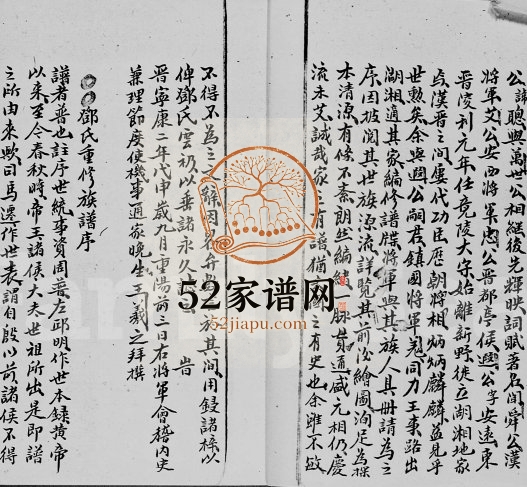 公諱聰興萬世公相繼後先輝映詞賦著名閭舜公漢
將軍艾公安西將軍忠公晉都亭侯興公子安遠東
晉陵刊元年任竟陵大守始離新野徙立湖湘地家
与漢晉之间屡代功臣歷朝將相炳炳麟麟益見乎
世勲矣余與興公嗣君鎮國將軍 同力王事路出
湖湘適其家編修譜牒將軍與其族人具册請為之
序因披閲其世族源流詳覧其前後繪圖洵足為探
本清源有條不紊朗然編緒 脈貫通盛元相仍慶
流未艾誠哉家之有譜猶國之有史也余雖不敏
不得不為之 解因名弁 族其间用鋟諸梓以
俾鄧氏雲礽以垂諸永久 告
晉寧康二年戊申歲九月重陽前三日右將軍會稽内史
兼理節度使機事通家晚生王羲之拜撰
鄧氏重修族譜序
譜者普也註序世統事資周普左邱明作世本録黄帝
以來至今春秋時帝王諸侯大夫世祖所出是即譜
之所由來歟司馬遷作世表謂自殷以前諸侯不得
52家谱网
52jiapu.com